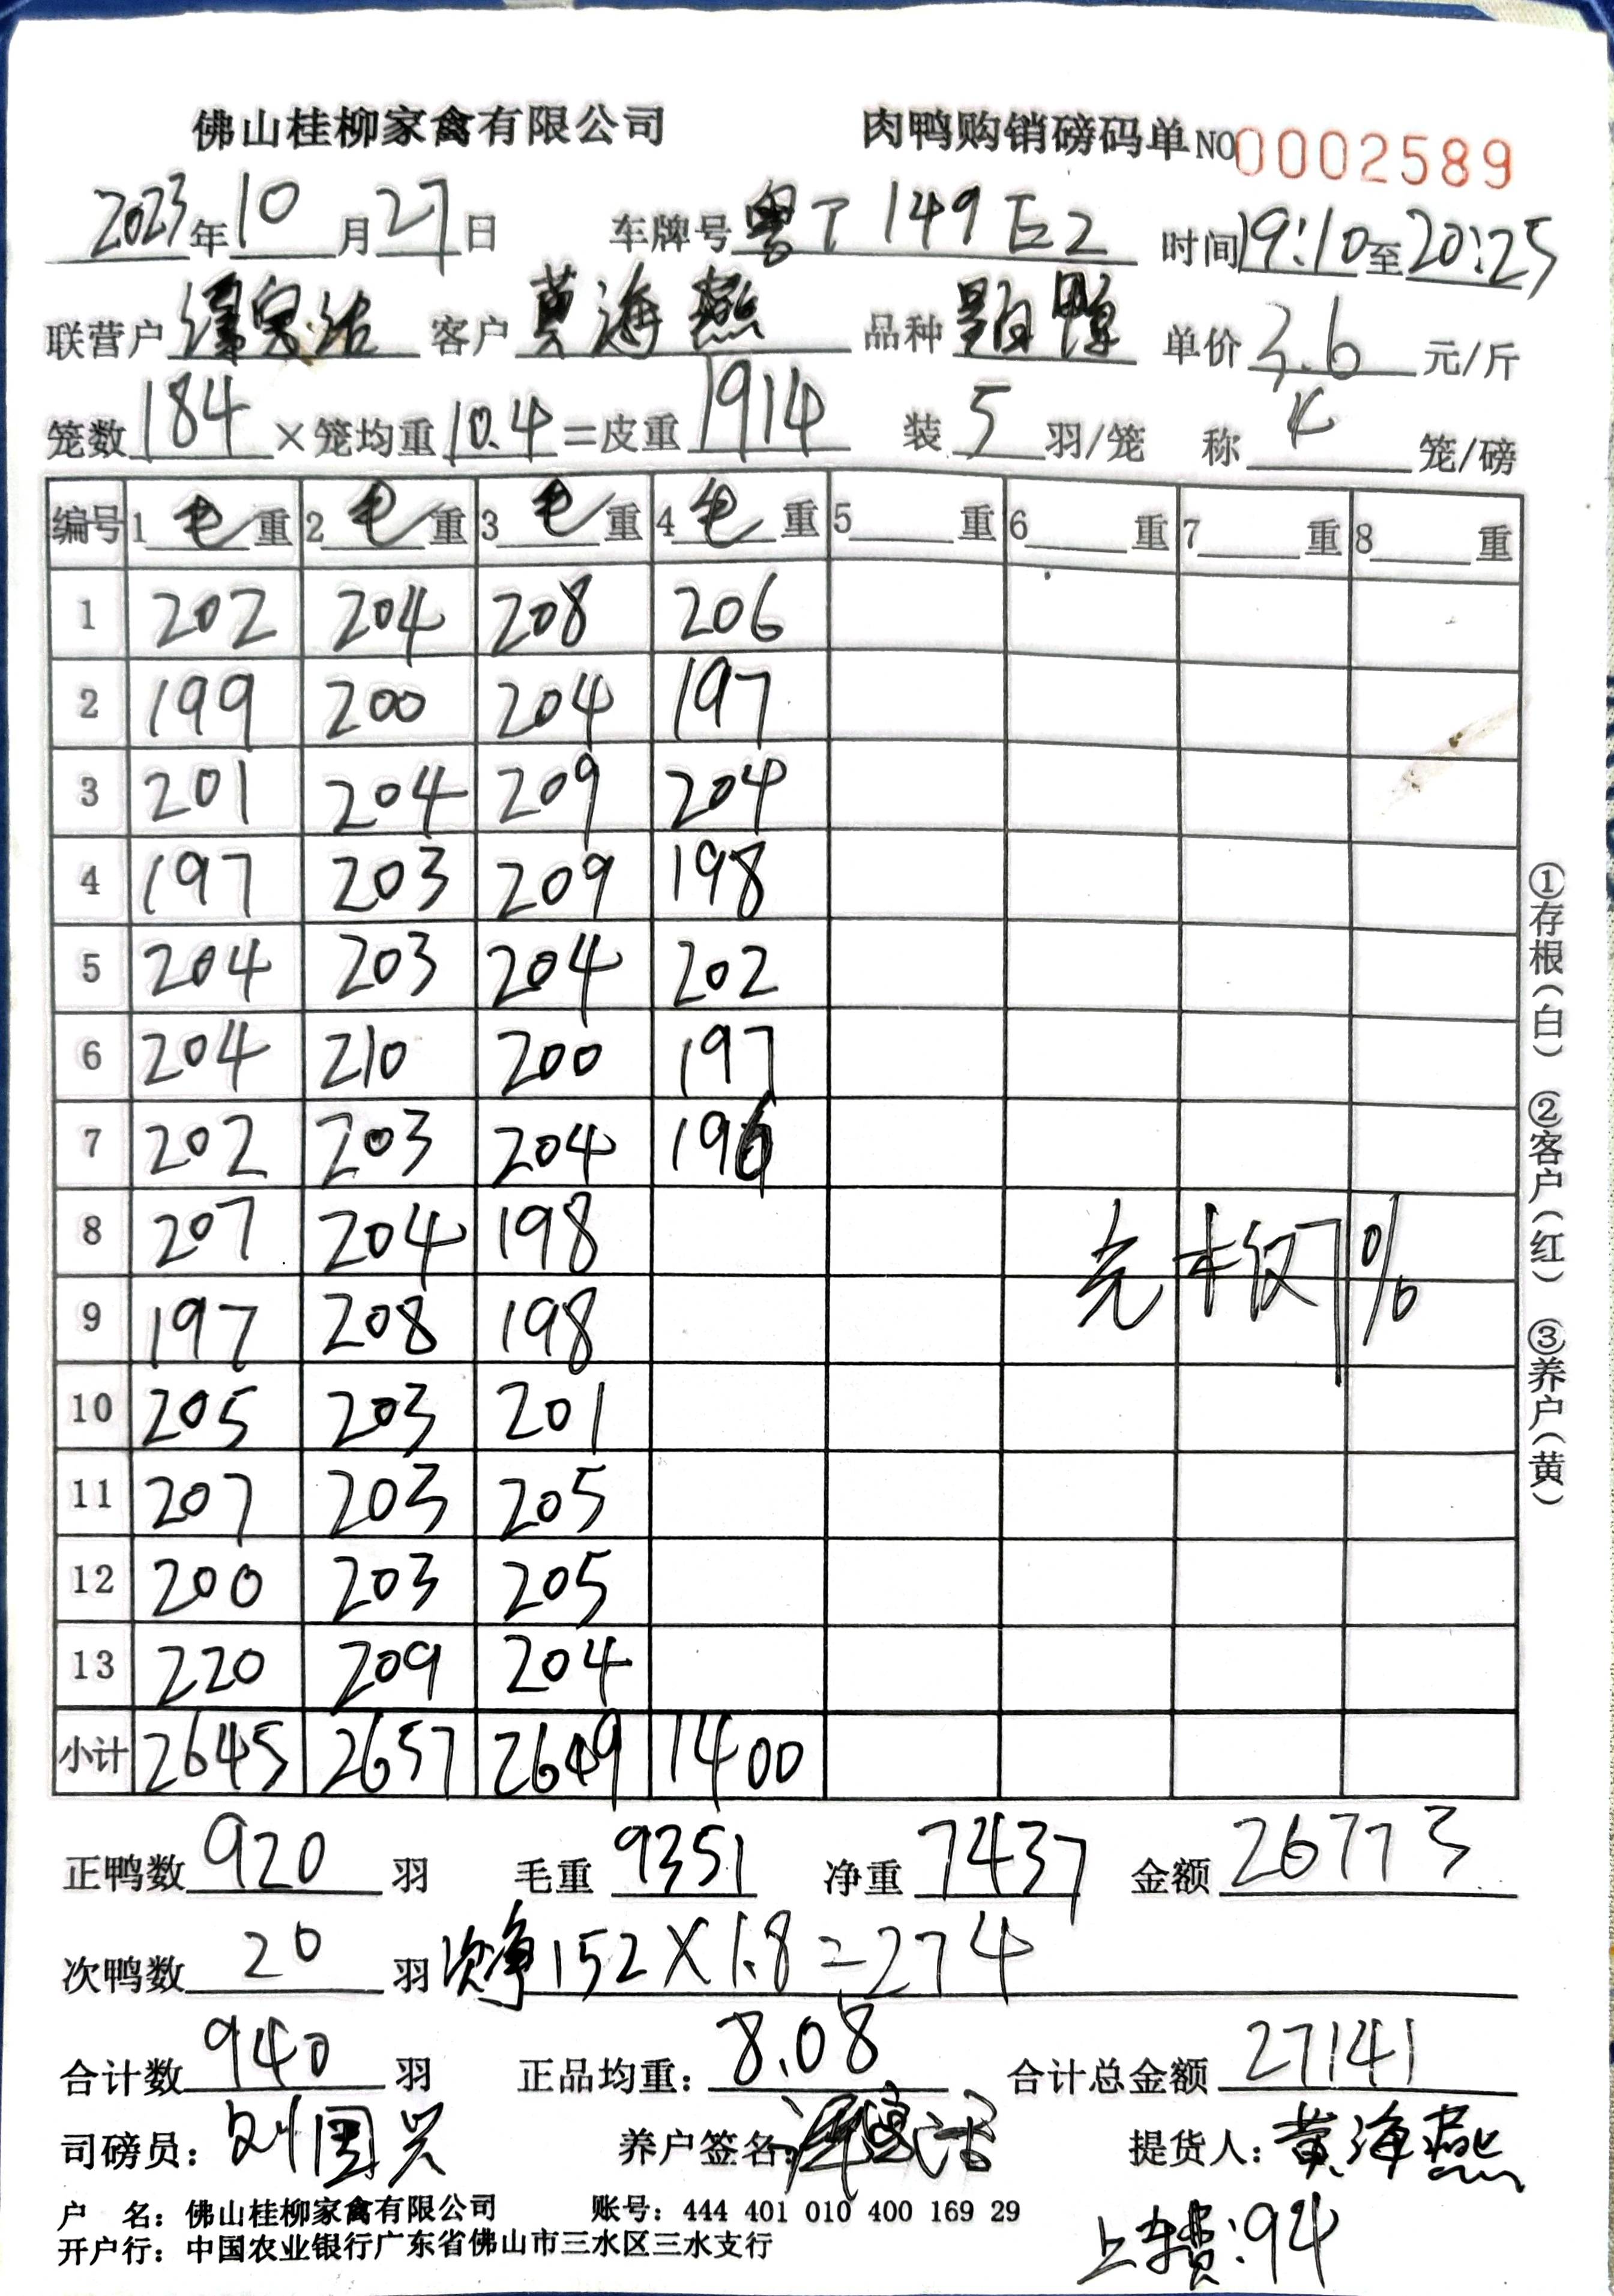 佛山桂柳家禽有限公司 肉鸭购销磅码单 NO 0002589
2023年10月27日 车牌号 粤T 149 时间 19:10至20:25
联营户 客户 黄海燕 品种 单价 3.6 元/斤
笼数 184 ×笼均重 10.4 =皮重 1914 装 5 羽/笼 称 4 笼/磅
编号 1 毛 重 2 毛 重 3 毛 重 4 毛 重 5 重 6 重 7 重 8 重
1 202 204 208 206
2 199 200 204 197
3 201 204 209 204
4 197 203 209 198
5 204 203 204 202
6 204 210 200 197
7 202 203 204 196
8 207 204 198
9 197 208 198
10 205 203 201
11 207 203 205
12 200 203 205
13 220 209 204
小计 2645 2657 2649 1400
%
①存根(白) ②客户(红) ③养户(黄)
正鸭数 920 羽 毛重 9351 净重 7437 金额 26773
次鸭数 20 羽 次净 152×1.8=274
合计数 940 羽 正品均重: 8.08 合计总金额 27141
司磅员: 刘国兴 养户签名: 提货人: 黄海燕
户 名: 佛山桂柳家禽有限公司 账号: 444 401 010 400 169 29
开户行: 中国农业银行广东省佛山市三水区三水支行
上车费:94